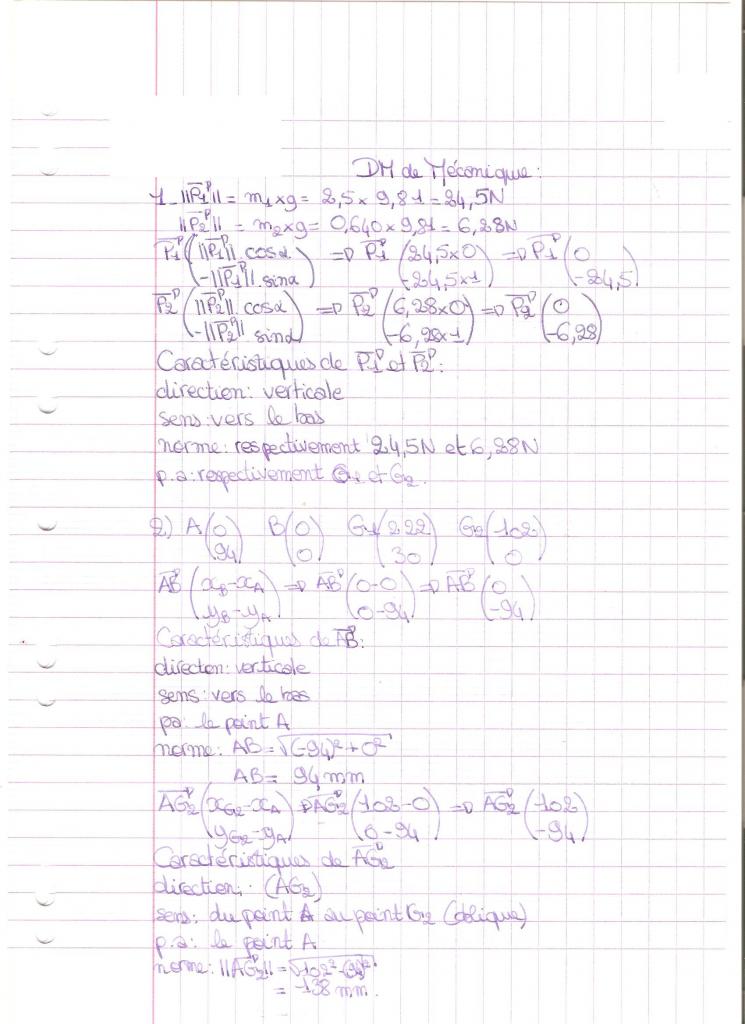 DM de Mécanique:
1_ ||P1|| = m1×g = 2,5 × 9,81 = 24,5N
||P2|| = m2×g = 0,640 × 9,81 = 6,28N
P1 (||P1||.cosα ⇒ P1 (24,5×0) ⇒ P1 (0
-||P1||.sinα) -24,5×1) -24,5)
P2 (||P2||.cosα ⇒ P2 (6,28×0) ⇒ P2 (0
-||P2||.sinα) -6,28×1) -6,28)
Caractéristiques de P1 et P2:
direction: verticale
sens: vers le bas
norme: respectivement 24,5N et 6,28N
p.a: respectivement G1 et G2.
2) A(0 B(0) G1(222 G2(102
94) 0) 30) 0)
AB (xB-xA) ⇒ AB (0-0) ⇒ AB (0
yB-yA) 0-94) -94)
Caractéristiques de AB:
directon: verticale
sens: vers le bas
pa: le point A
norme: AB = √(-94)²+0²
AB = 94 mm
AG2 (xG2-xA) ⇒ AG2 (102-0) ⇒ AG2 (102
yG2-yA) 0-94) -94)
Caractéristiques de AG2
direction: (AG2)
sens: du point A au point G2 (oblique)
p.a: le point A
norme: ||AG2|| = √102²-(94)²
= 138 mm.